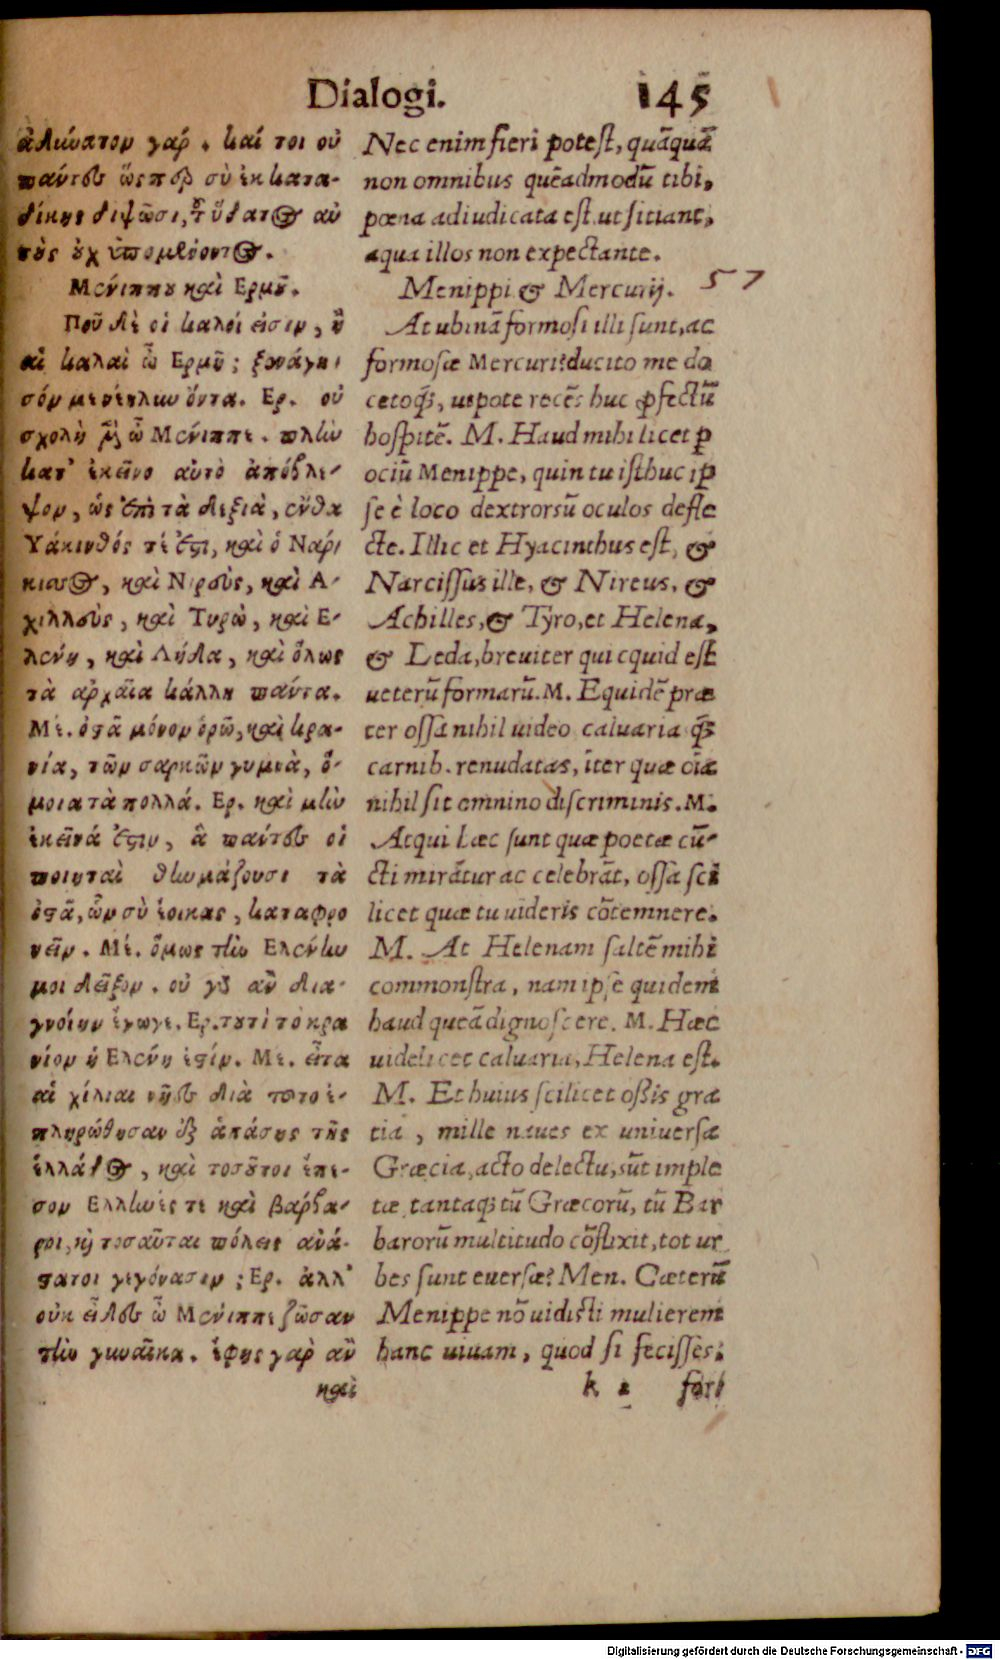 Dialogi. 145
ἀδιώατον γάρ. καί τοι οὐ
πάντες ὥςπερ σὺ ἐκ κατα-
δίκης διψῶσι, τ͂ ὕδατος αὐ
τοὺς οὐχ ὑπομένοντος.
Μενίππου καὶ Ερμοῦ.
Ποῦ δὲ οἱ καλοί εἰσιν, ἢ
αἱ καλαὶ ὦ Ερμῆ; ξενάγη-
σόν με νέηλυν ὄντα. Ερ. οὐ
σχολὴ μὲν ὦ Μένιππε. πλὴν
κατ' ἐκεῖνο αὐτὸ ἀπόβλε-
ψον, ὡς ἐπὶ τὰ δεξιὰ, ἔνθα
Υάκινθός τέ ἐστι, καὶ ὁ Νάρ-
κισσος, καὶ Νιρεὺς, καὶ Α-
χιλλεὺς, καὶ Τυρὼ, καὶ Ε-
λένη, καὶ Λήδα, καὶ ὅλως
τὰ ἀρχαῖα κάλλη πάντα.
Μέ. ὀστᾶ μόνον ὁρῶ, καὶ κρα-
νία, τῶν σαρκῶν γυμνὰ, ὅ-
μοια τὰ πολλά. Ερ. καὶ μὴν
ἐκεῖνά ἐστιν, ἃ πάντες οἱ
ποιηταὶ θαυμάζουσι τὰ
ὀστᾶ, ὧν σὺ ἔοικας, καταφρο
νεῖν. Μέ. ὅμως τὴν Ελένην
μοι δεῖξον. οὐ γὰρ ἂν δια-
γνοίην ἔγωγε. Ερ. τουτὶ τὸ κρα
νίον ἡ Ελένη ἐστίν. Μέ. εἶτα
αἱ χίλιαι νῆες διὰ τοῦτο ἐ-
πληρώθησαν ἐξ ἁπάσης τῆς
ἑλλάδος, καὶ τοσοῦτοι ἔπε-
σον Ελληνές τε καὶ βάρβα-
ροι, καὶ τοσαῦται πόλεις ἀνά-
στατοι γεγόνασιν; Ερ. ἀλλ'
οὐκ εἶδες ὦ Μένιππε ζῶσαν
τὴν γυναῖκα. ἔφης γὰρ ἂν
καὶ
Nec enim fieri potest, quāquā
non omnibus quēadmodū tibi,
pœna adiudicata est, ut sitiant,
aqua illos non expectante.
Menippi & Mercurij. 57
At ubinā formosi illi sunt, ac
formosæ Mercuri? ducito me do
cetoq́;, utpote recēs huc ꝓfectū
hospitē. M. Haud mihi licet ꝑ
ociū Menippe, quin tu isthuc ip
se è loco dextrorsū oculos defle
cte. Illic et Hyacinthus est, &
Narcissus ille, & Nireus, &
Achilles, & Tyro, et Helena,
& Leda, breuiter quicquid est
ueterū formarū. M. Equidē præ
ter ossa nihil uideo caluariaq́;
carnib. renudatas, īter quæ oīa
nihil sit omnino discriminis. M.
Atqui hæc sunt quæ poetæ cū-
cti mirātur ac celebrāt, ossa sci
licet quæ tu uideris cōtemnere.
M. At Helenam saltē mihi
commonstra, nam ipse quidem
haud queā dignoscere. M. Hæc
uidelicet caluaria, Helena est.
M. Et huius scilicet ossis gra
tia, mille naues ex uniuersa
Græcia, acto delectu, sūt imple
tæ, tantaq́; tū Græcorū, tū Bar
barorū multitudo cōflixit, tot ur
bes sunt euersæ? Men. Cæterū
Menippe nō uidisti mulierem
hanc uiuam, quod si fecisses,
k 2 fors
Digitalisierung gefördert durch die Deutsche Forschungsgemeinschaft - DFG